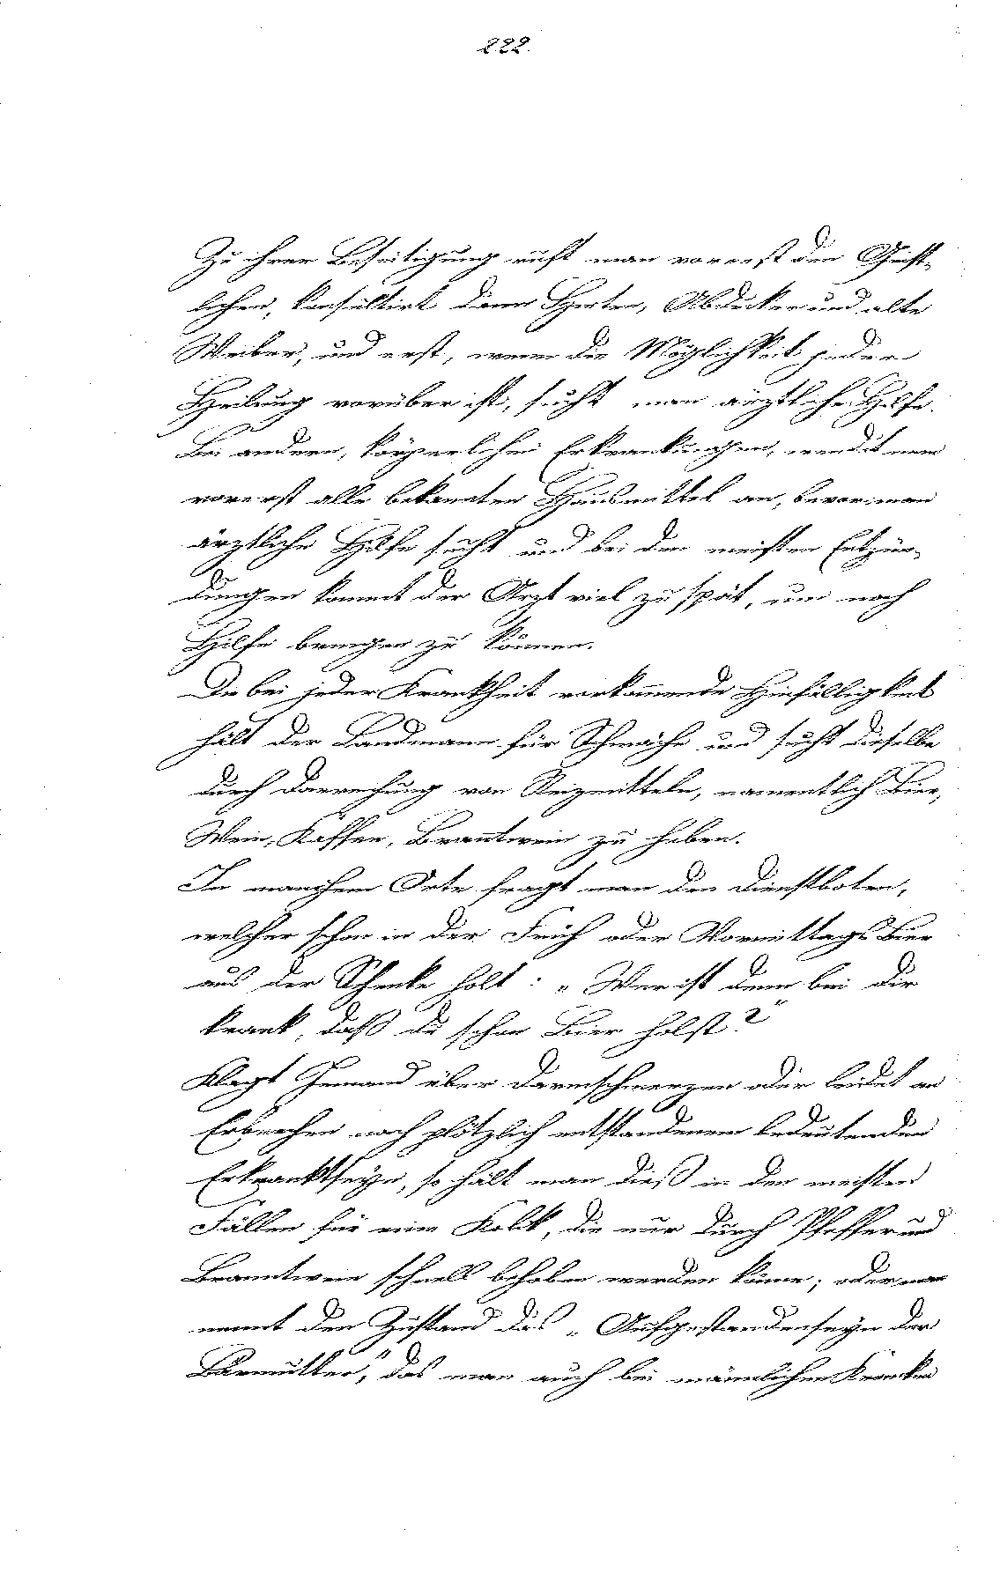 222.
Zu ihrer Beseitigung ruft man vorerst den Geist-
lichen, konsultirt dann Hirten, Abdecker und alte
Weiber, und erst, wenn die Möglichkeit jeder
Heilung vorüber ist, sucht man ärztliche Hilfe.
Bei andern, körperlichen Erkrankungen, wendet man
vorerst alle bekannten Hausmittel an, bevor man
ärztliche Hilfe sucht und bei den meisten Entzün-
dungen kommt der Arzt viel zu spät, um noch
Hilfe bringen zu können.
Die bei jeder Krankheit vorkommende Hinfälligkeit
hält der Landmann für Schwäche und sucht dieselbe
durch Darreichung von Reizmitteln, namentlich Bier,
Wein, Kaffee, Branntwein zu heben.
In manchem Orte fragt man den Dienstboten,
welcher schon in der Früh oder Vormittags Bier
aus der Schenke holt: „Wer ist denn bei dir
krank, daß du schon Bier holst?"
Klagt Jemand über Darmschmerzen oder leidet an
Erbrechen nach plötzlich entstandenem bedeutenden
Erkranktseyn, so hält man dieß in den meisten
Fällen für eine Kolik, die nur durch Pfeffer und
Branntwein schnell behoben werden könne; oder man
nennt den Zustand das „Aufgestandenseyn der
Bärmutter", das man auch bei männlichen Kranken